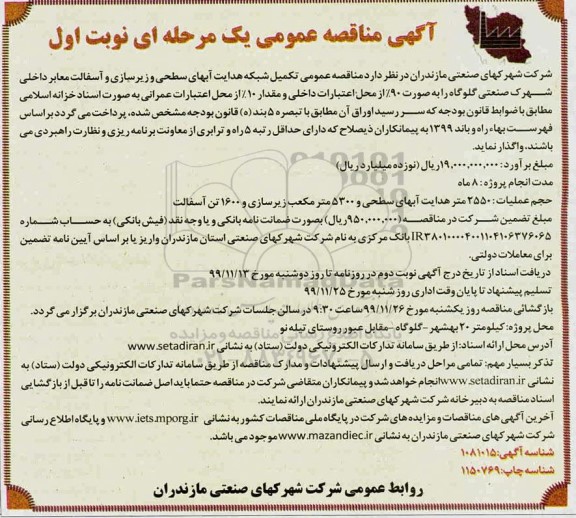 آگهی مناقصه عمومی یک مرحله ای نوبت اول
شرکت شهرکهای صنعتی مازندران در نظر دارد مناقصه عمومی تکمیل شبکه هدایت آبهای سطحی و زیرسازی و آسفالت معابر داخلی
شهرک صنعتی گلوگاه را به صورت ۹۰٪ از محل اعتبارات داخلی و مقدار ۱۰٪ از محل اعتبارات عمرانی به صورت اسناد خزانه اسلامی
مطابق با ضوابط قانون بودجه که سر رسید اوراق آن مطابق با تبصره ۵ بند (ه) قانون بودجه مشخص شده، پرداخت می گردد بر اساس
فهرست بهاء راه و باند ۱۳۹۹ به پیمانکاران ذیصلاح که دارای حداقل رتبه ۵ راه و ترابری از معاونت برنامه ریزی و نظارت راهبردی می
باشند، واگذار نماید.
مبلغ برآورد: ۱۹,۰۰۰,۰۰۰,۰۰۰ ریال (نوزده میلیارد ریال)
مدت انجام پروژه: ۸ ماه
حجم عملیات: ۲۵۵۰ متر هدایت آبهای سطحی و ۵۳۰۰ متر مکعب زیرسازی و ۱۶۰۰ تن آسفالت
مبلغ تضمین شرکت در مناقصه (۹۵۰,۰۰۰,۰۰۰ ریال) بصورت ضمانت نامه بانکی و یا وجه نقد (فیش بانکی) به حساب شماره
IR۳۸۰۱۰۰۰۰۴۰۰۱۱۰۴۱۰۶۳۷۶۰۶۵ بانک مرکزی به نام شرکت شهرکهای صنعتی استان مازندران واریز یا بر اساس آیین نامه تضمین
برای معاملات دولتی.
دریافت اسناد از تاریخ درج آگهی نوبت دوم در روزنامه تا روز دوشنبه مورخ ۹۹/۱۱/۱۳
تسلیم پیشنهاد تا پایان وقت اداری روز شنبه مورخ ۹۹/۱۱/۲۵
بازگشائی مناقصه روز یکشنبه مورخ ۹۹/۱۱/۲۶ ساعت ۹:۳۰ در سالن جلسات شرکت شهرکهای صنعتی مازندران برگزار می گردد.
محل پروژه: کیلومتر ۲۰ بهشهر - گلوگاه - مقابل عبور روستای تیله نو
آدرس محل ارائه اسناد: از طریق سامانه تدارکات الکترونیکی دولت (ستاد) به نشانی www.setadiran.ir
تذکر بسیار مهم: تمامی مراحل دریافت و ارسال پیشنهادات و مدارک مناقصه از طریق سامانه تدارکات الکترونیکی دولت (ستاد) به
نشانی www.setadiran.ir انجام خواهد شد و پیمانکاران متقاضی شرکت در مناقصه حتما باید اصل ضمانت نامه را تا قبل از بازگشایی
اسناد مناقصه به دبیر خانه شرکت شهرکهای صنعتی مازندران ارائه نمایند.
آخرین آگهی های مناقصات و مزایده های شرکت در پایگاه ملی مناقصات کشور به نشانی www.iets.mporg.ir و پایگاه اطلاع رسانی
شرکت شهرکهای صنعتی مازندران به نشانی www.mazandiec.ir موجود می باشد.
شناسه آگهی: ۱۰۸۱۰۱۵
شناسه چاپ: ۱۱۵۰۷۶۹
روابط عمومی شرکت شهرکهای صنعتی مازندران